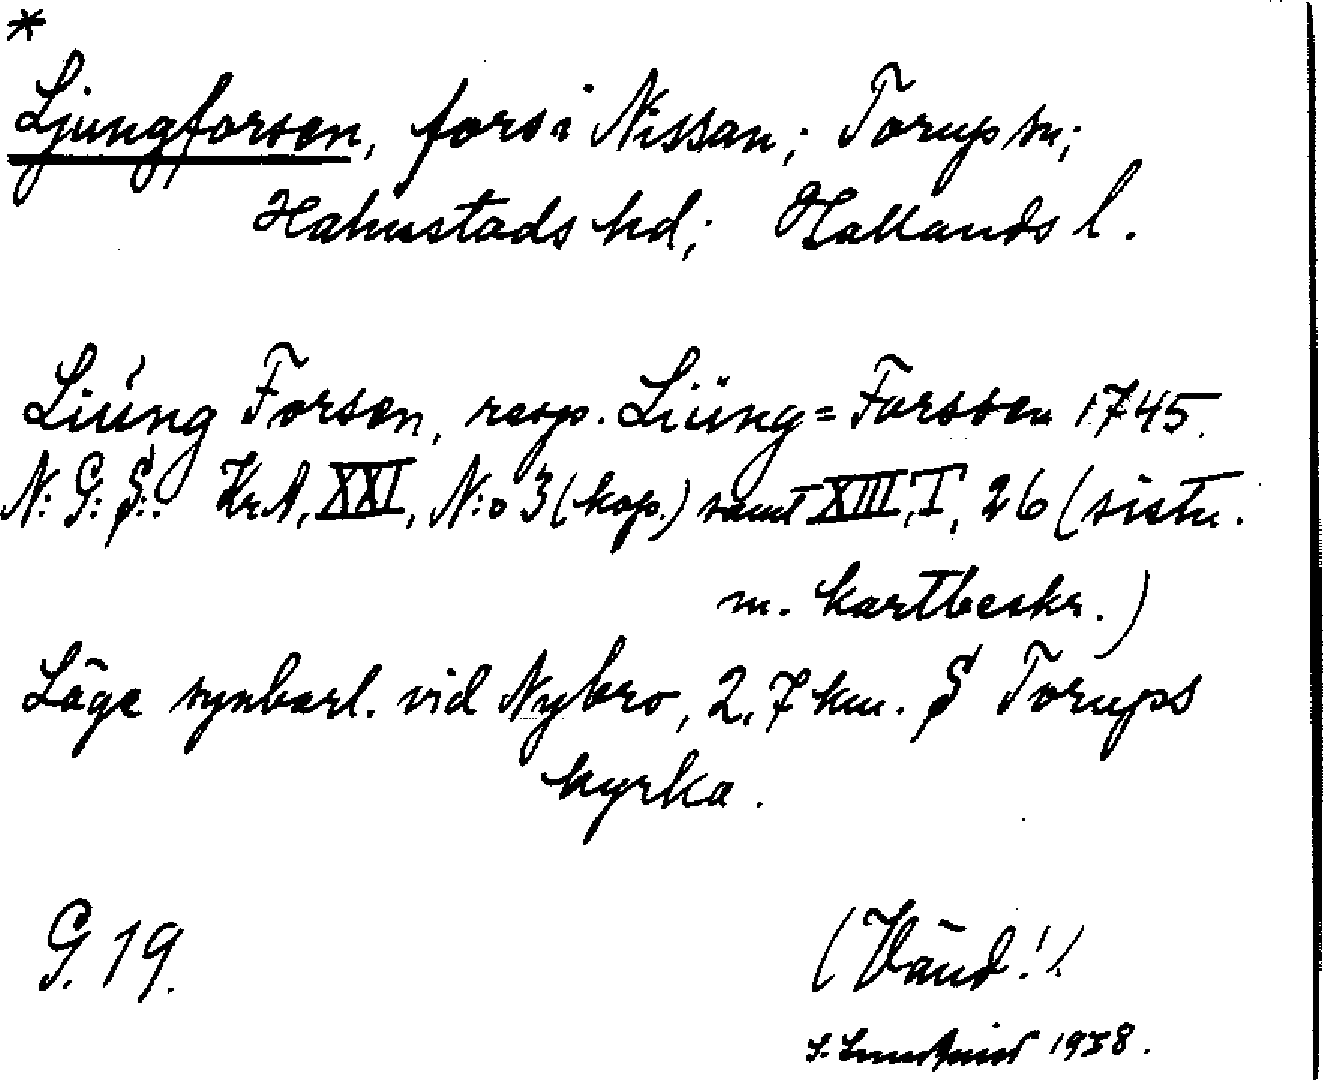 *
Ljungforsen, fors i Nissan; Torups sn;
Halmstads hd; Hallands l.
Liúng Forsen, resp. Liüng=Forssen 1745.
N: G: S: KrA, XXI, N:o 3 (kop.) samt XIII, I, 26 (sistn.
m. kartbeskr.)
Läge synbarl. vid Nybro, 2,7 km. S Torups
kyrka.
G. 19.
(Vänd!)
1938.